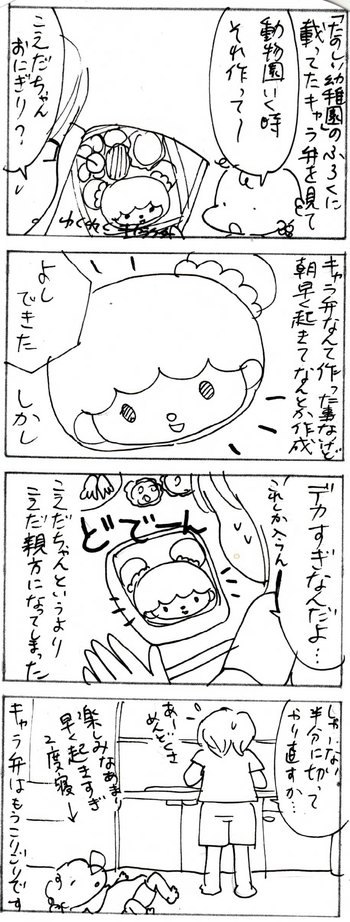 「たのしい幼稚園」のふろくに
載ってたキャラ弁を見て
動物園いく時
それ作って〜
こえだちゃん
おにぎり？
わくわく
キャラ弁なんて作った事ないけど
朝早く起きてなんとか作成
よし
できた
しかし
デカすぎなんだよ…
これしか入らん
どでーん
こえだちゃんというより
こえだ親方になってしまった
しゃーない
半分に切って
やり直すか…
あー
めんどくさ
楽しみなあまり
早く起きすぎ
2度寝→
キャラ弁はもうこりごりです